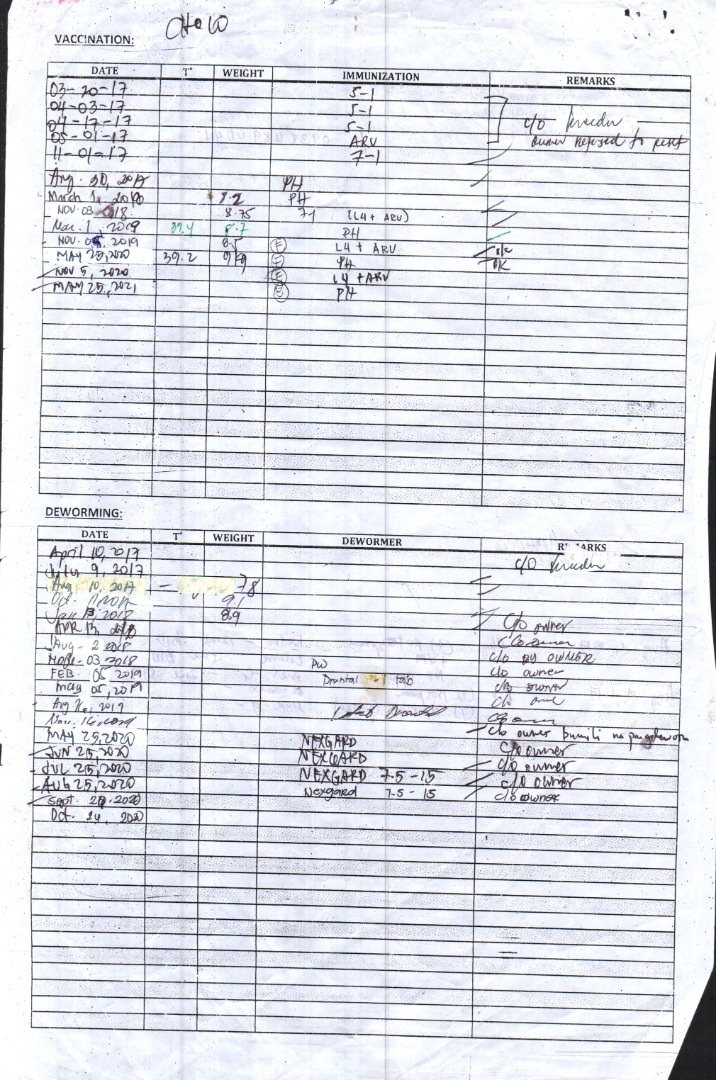 VACCINATION:
DATE T° WEIGHT IMMUNIZATION REMARKS
03-20-17 5-1
04-03-17 5-1
04-17-17 5-1 c/o breeder
05-01-17 ARV owner refused to reset
11-01-17 7-1
Aug. 30, 2017 PH
March 1, 2018 8.2 PH
NOV. 03 2018 8.75 7-1 (L4 + ARV)
Mar. 1, 2019 8.7 PH
NOV. 05, 2019 8.5 L4 + ARV OK
MAY 25, 2020 39.2 PH OK
NOV 5, 2020 L4 + ARV
MAY 25, 2021 PH
DEWORMING:
DATE T° WEIGHT DEWORMER REMARKS
April 10, 2017 c/o breeder
July 9, 2017
Aug. 10, 2017 - 7.8
Oct. 9.1
Jan 13 2018 8.9
APR 13, 2018 C/o owner
Aug - 2 2018 c/o owner
NOV - 03 2018 c/o BY OWNER
FEB. 05 2019 PW c/o owner
May 05, 2019 Drontal 1 tab c/o owner
c/o owner
Nov. c/o owner
MAY 25, 2020 NEXGARD c/o owner bumili na pangdeworm
JUN 25, 2020 NEXGARD C/o owner
JUL 25, 2020 NEXGARD 7.5 - 15 c/o owner
AUG 25, 2020 Nexgard 7.5 - 15 c/o owner
Sept. 24, 2020 c/o owner
Oct. 24, 2020